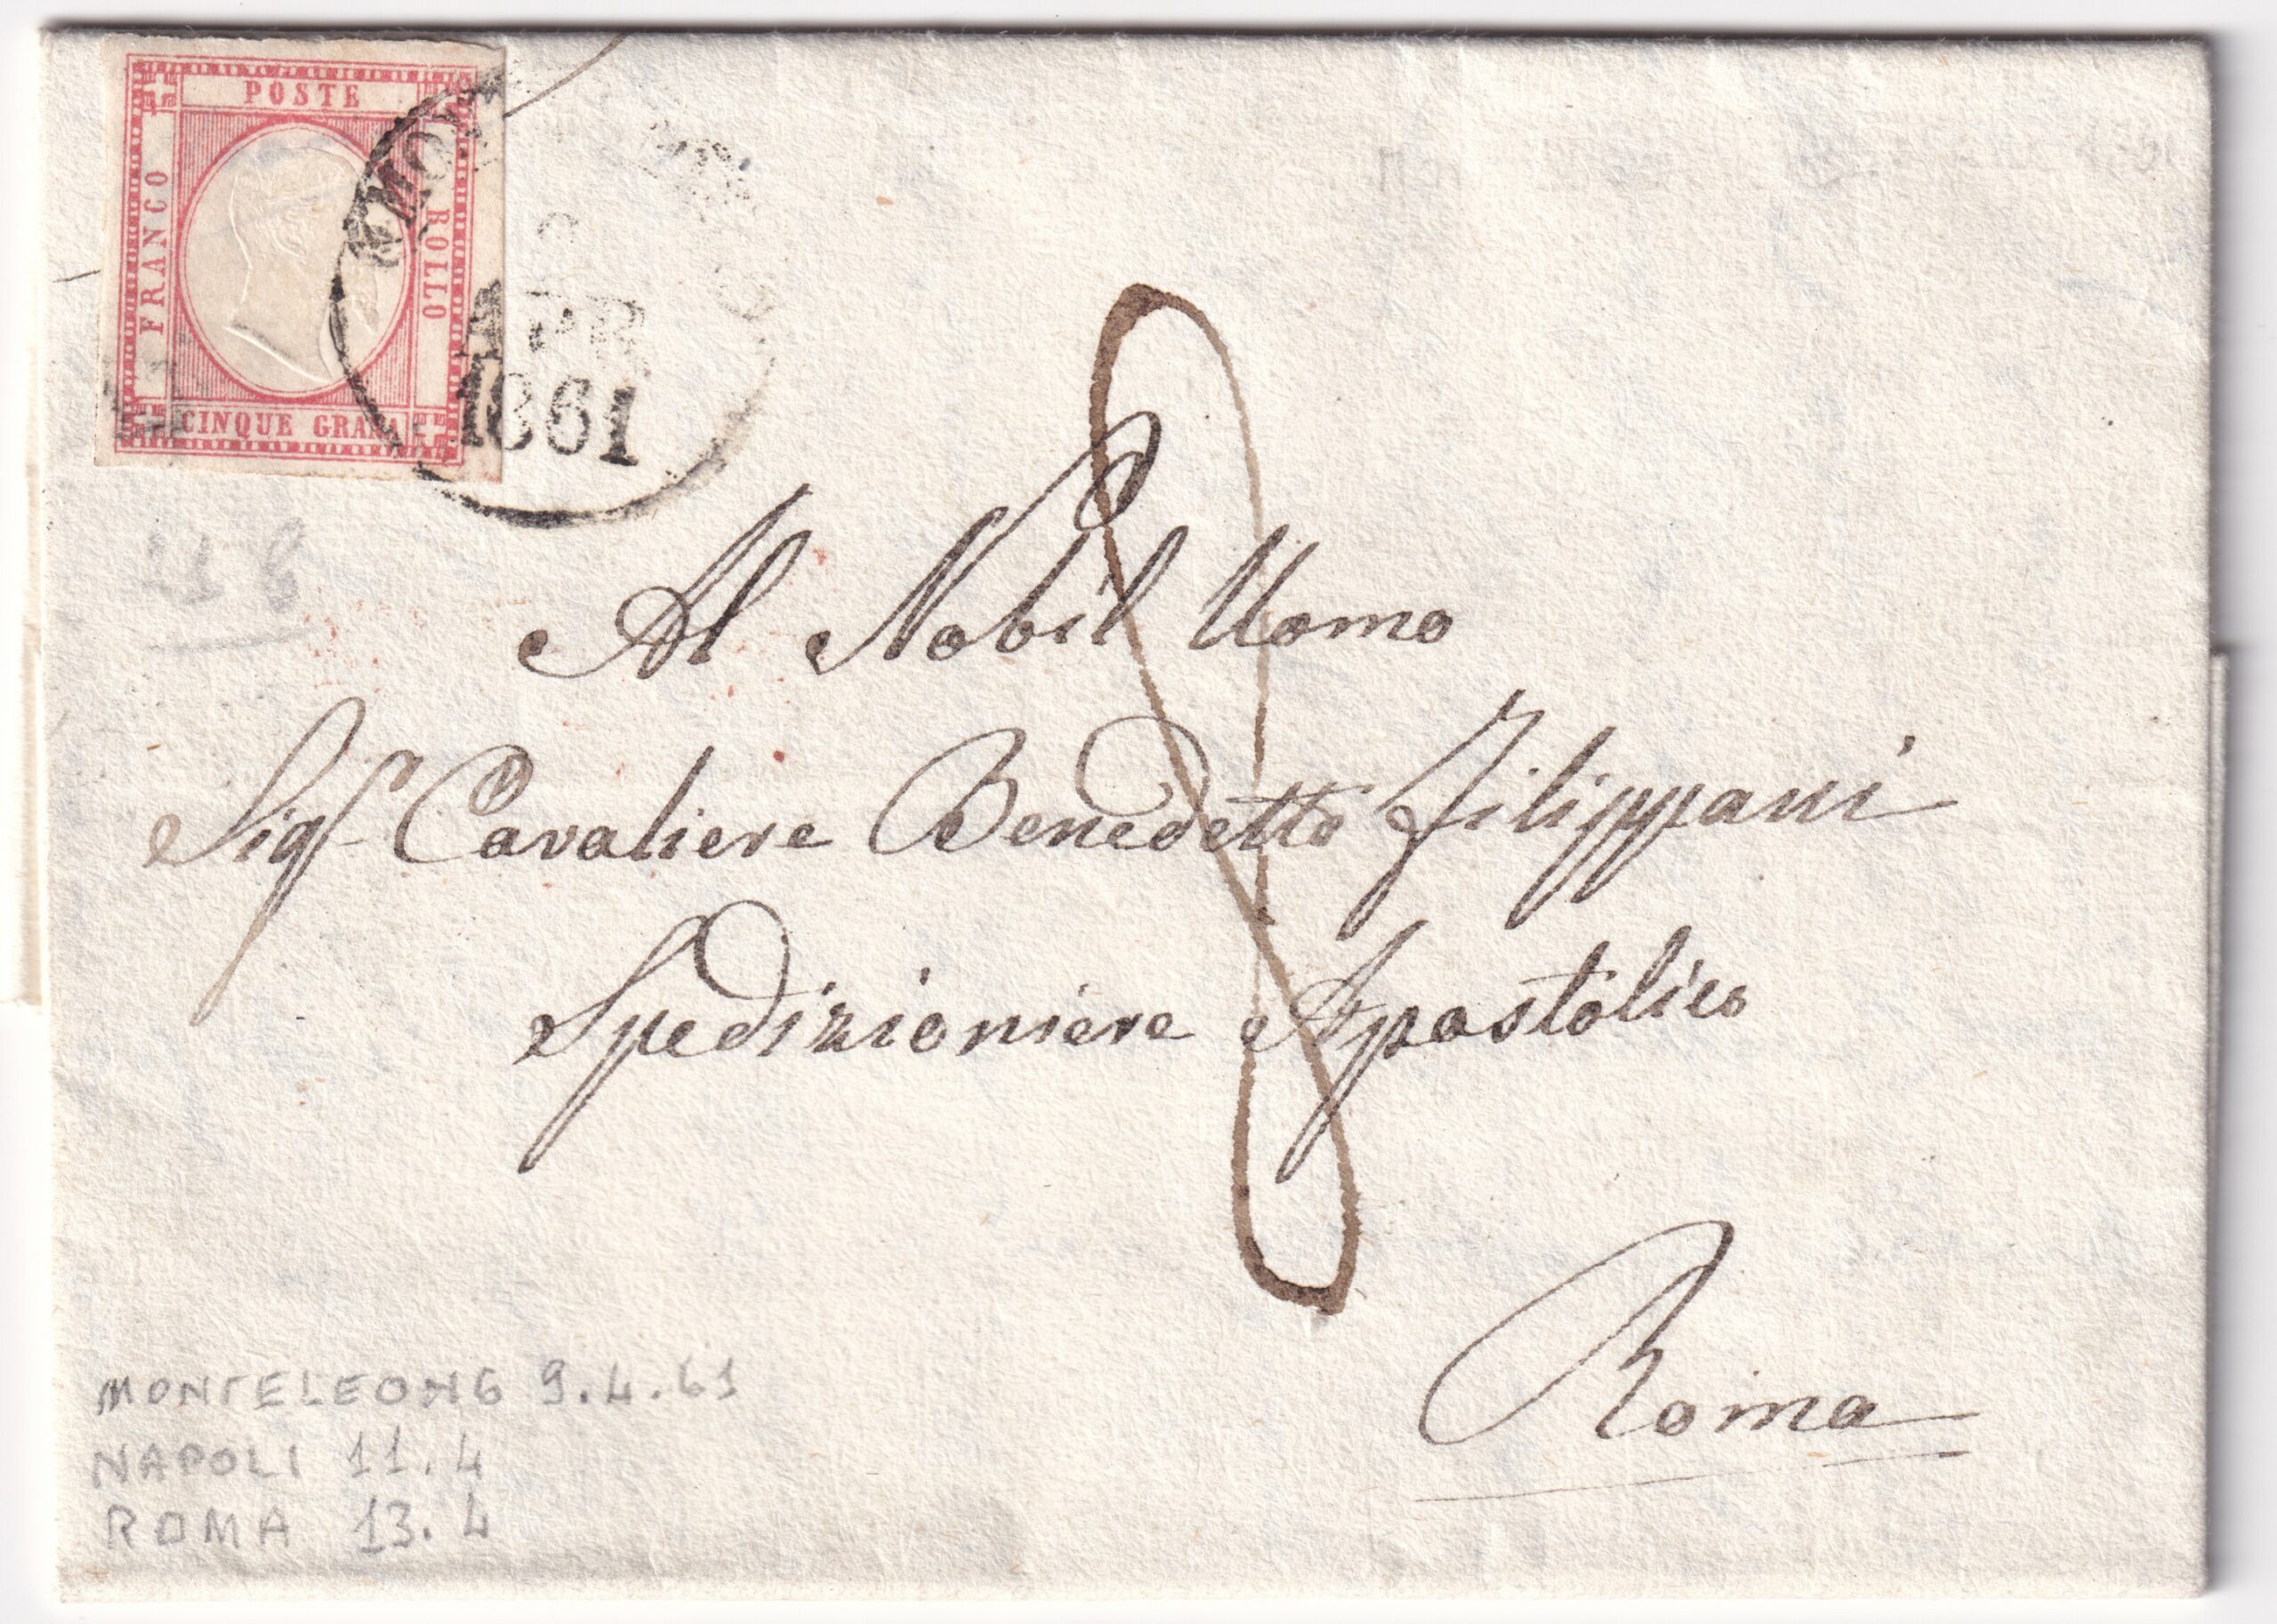 POSTE
FRANCO
BOLLO
CINQUE GRANA
APR
1861
Al Nobil Uomo
Sigr Cavaliere Benedetto Filippani
Spedizioniere Apostolico
Roma
MONTELEONE 9.4.61
NAPOLI 11.4
ROMA 13.4